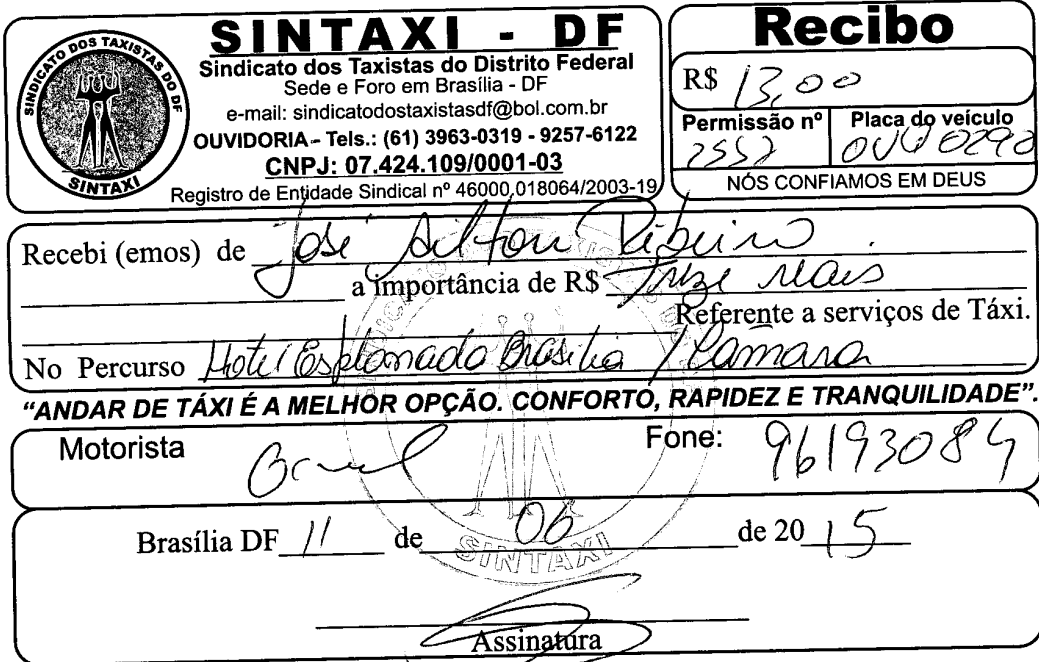 SINDICATO DOS TAXISTAS DO DF
SINTAXI
SINTAXI - DF
Sindicato dos Taxistas do Distrito Federal
Sede e Foro em Brasília - DF
e-mail: sindicatodostaxistasdf@bol.com.br
OUVIDORIA - Tels.: (61) 3963-0319 - 9257-6122
CNPJ: 07.424.109/0001-03
Registro de Entidade Sindical nº 46000.018064/2003-19
Recibo
R$ 13,00
Permissão nº Placa do veículo
2552 0290
NÓS CONFIAMOS EM DEUS
Recebi (emos) de José Ailton Ribeiro.
a importância de R$ Treze reais
Referente a serviços de Táxi.
No Percurso Hotel Esplanada Brasilia / Câmara
"ANDAR DE TÁXI É A MELHOR OPÇÃO. CONFORTO, RAPIDEZ E TRANQUILIDADE".
Motorista Fone: 96193084
Brasília DF 11 de 06 de 2015
SINTAXI
Assinatura